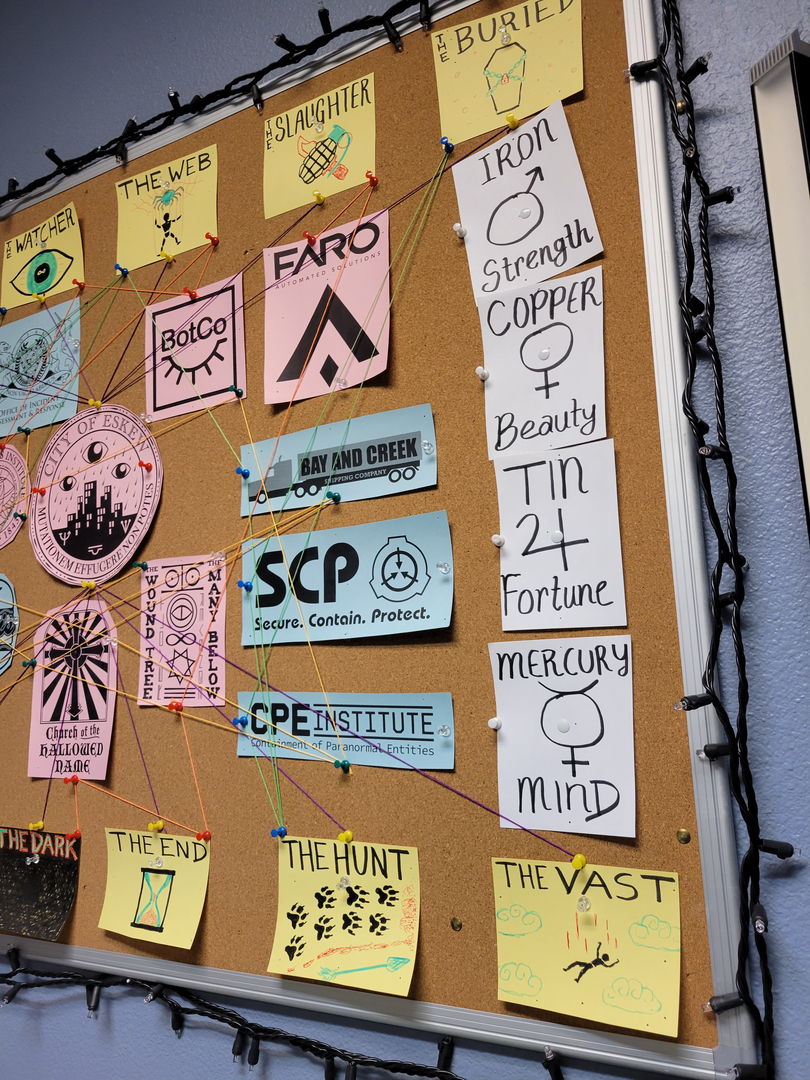 THE BURIED
THE SLAUGHTER
THE WEB
THE WATCHER
IRON
Strength
FARO
AUTOMATED SOLUTIONS
BotCo
COPPER
Beauty
OFFICE OF INCIDENT
ASSESSMENT & RESPONSE
CITY OF ESKEW
MUTATIONEM EFFUGERE NON POTES
BAY AND CREEK
SHIPPING COMPANY
TIN
Fortune
SCP
Secure. Contain. Protect.
THE WOUND TREE
THE MANY BELOW
Church of the
HALLOWED
NAME
MERCURY
MIND
CPE INSTITUTE
Containment of Paranormal Entities
THE DARK
THE END
THE HUNT
THE VAST